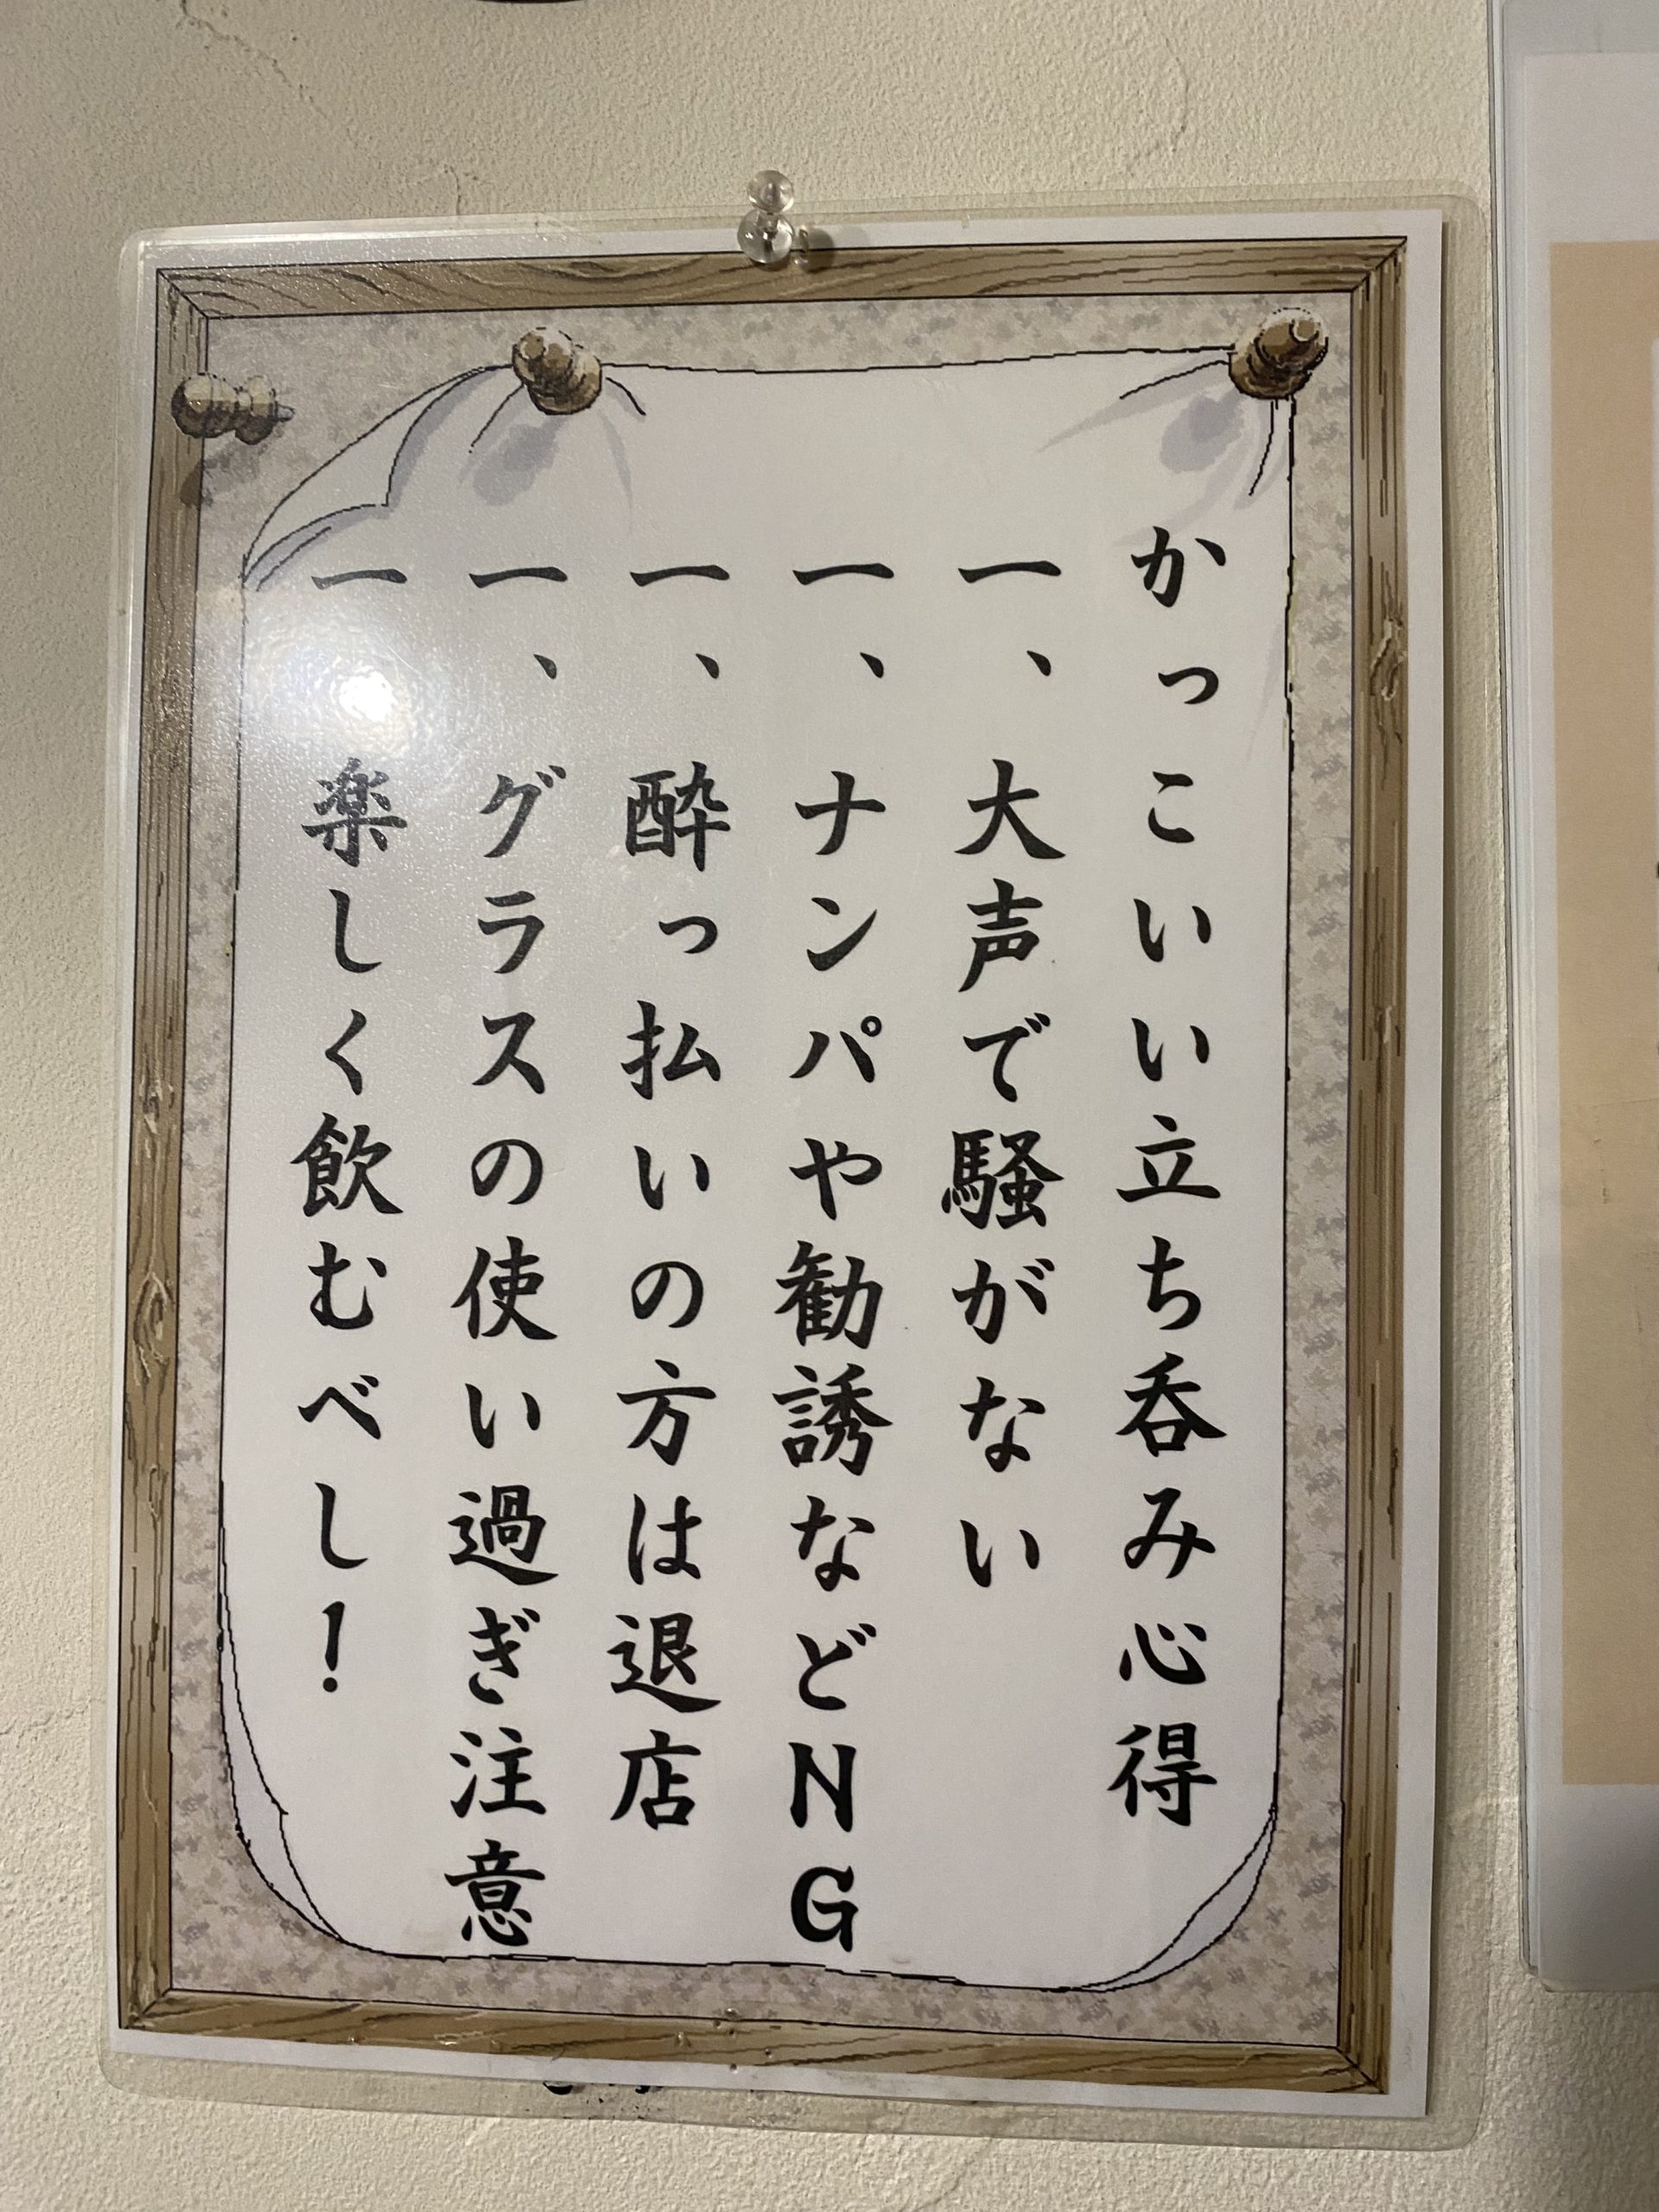 かっこいい立ち呑み心得
一、大声で騒がない
一、ナンパや勧誘などNG
一、酔っ払いの方は退店
一、グラスの使い過ぎ注意
一 楽しく飲むべし！